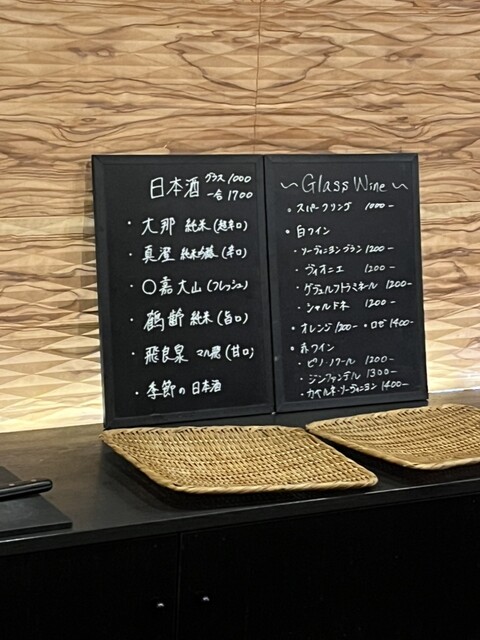 日本酒 グラス 1000
一合 1700
・大那 純米(超辛口)
・真澄 純米吟醸(辛口)
・〇嘉大山(フレッシュ)
・鶴齢 純米(旨口)
・飛良泉 マル飛(甘口)
・季節の日本酒
〜Glass Wine〜
。スパークリング 1000-
。白ワイン
・ソーヴィニヨンブラン 1200-
・ヴィオニエ 1200-
・ゲヴュルツトラミネール 1200-
・シャルドネ 1200-
。オレンジ 1200-・ロゼ 1400-
。赤ワイン
・ピノ・ノワール 1200-
・ジンファンデル 1300-
・カベルネ・ソーヴィニヨン 1400-